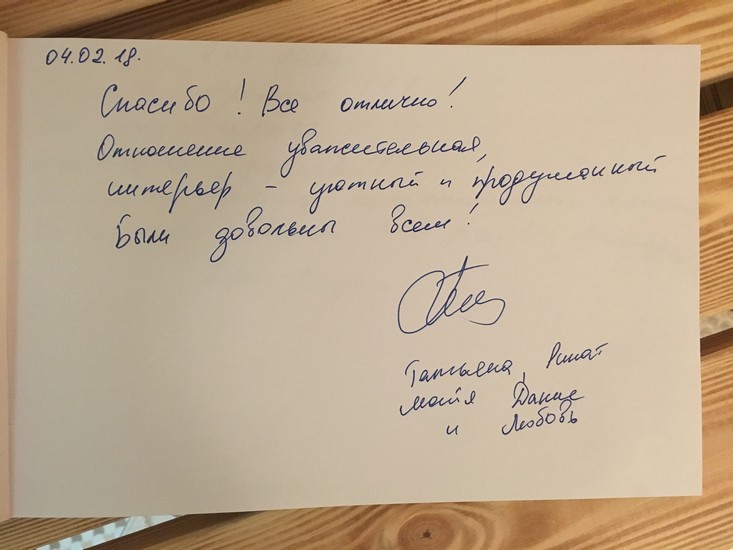 04.02.18.
Спасибо! Все отлично!
Отношение уважительная,
интерьер - уютный и продуманный
Были довольны всем!
Татьяна, Ринат
Майя, Данис
и Любовь